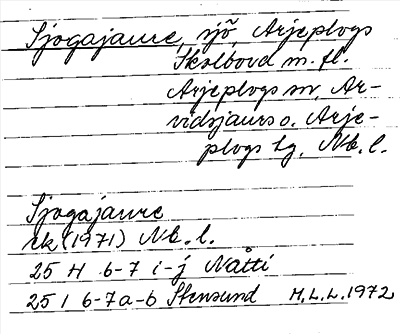 Sjogajaure, sjö, Arjeplogs
Skolbord m. fl.
Arjeplogs sn, Ar-
vidsjaurs o. Arje-
plogs tg, Nb. l.
Sjogajaure
ek (1971) Nb. l.
25 H 6-7 i-j Nåtti
25 I 6-7 a-b Stensund M.L.L. 1972